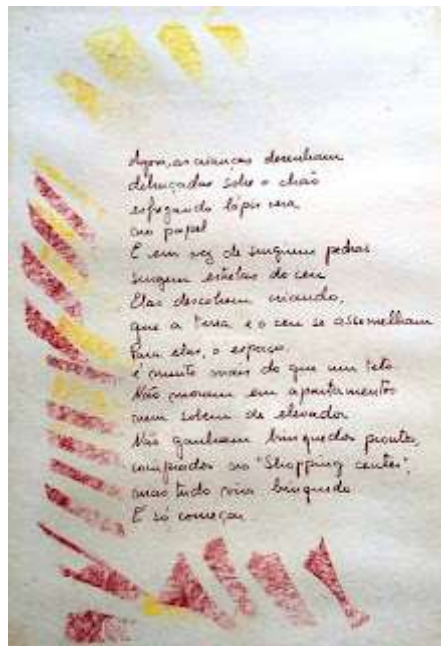 Agora, as crianças desenham
debruçadas sobre o chão
esfregando lápis cera
no papel
E em vez de surgirem pedras
surgem estrelas do céu
Elas descobrem criando,
que a terra e o céu se assemelham
Para elas, o espaço,
é muito mais do que um teto
Não moram em apartamentos
nem sobem de elevador
Não ganham brinquedos prontos,
comprados no "Shopping center",
mas tudo vira brinquedo
É só começar.